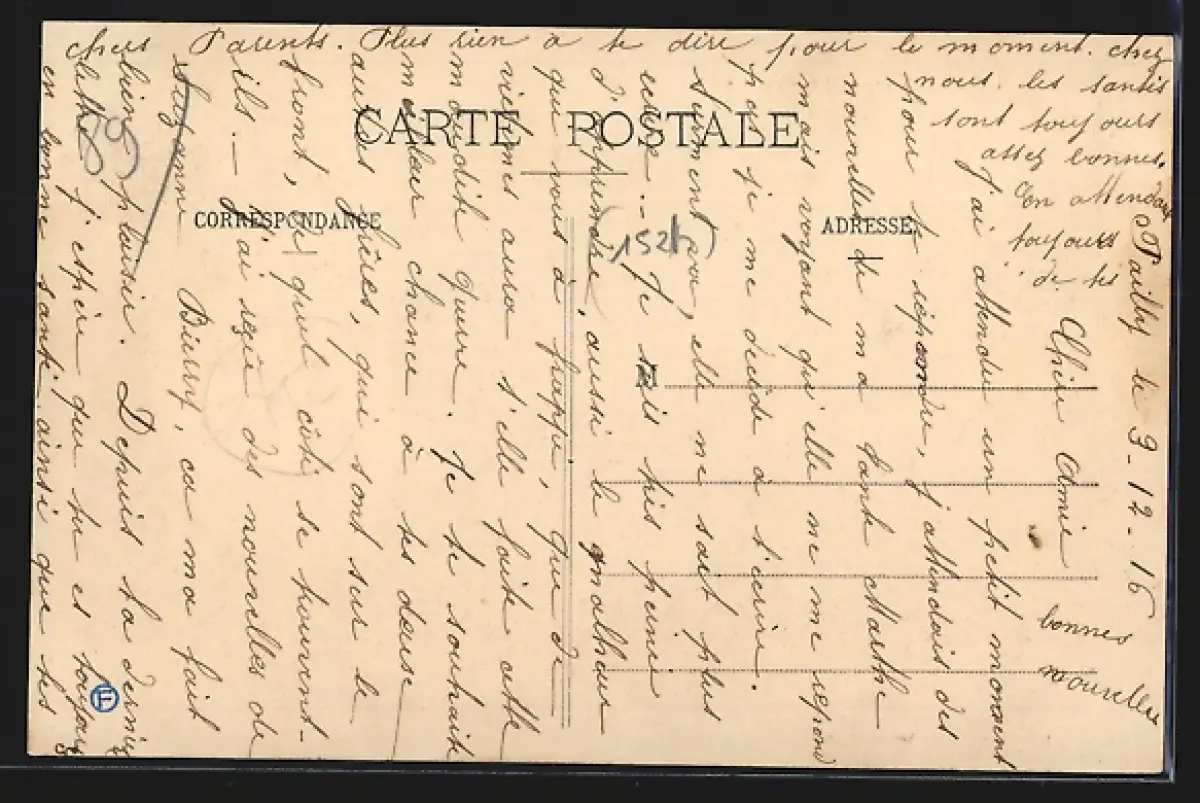 Pailly le 9-12-16
Chère Amie
J'ai attendu un petit moment
pour te répondre, j'attendais des
nouvelles de ma tante Marthe
mais voyant qu'elle ne me repond
pas, je me décide à t'écrire.
surement pas, elle ne sait plus
écrire... Je suis très peinée
d'apprendre, aussi le malheur
qui vous à frappé, que de
victimes aura t'elle faite cette
maudite guerre. Je te souhaite
meilleur chance à tes deux
autres frères, qui sont sur le
front, de quel côté se trouvent-
ils. – J'ai reçu des nouvelles de
Suzanne Bierry, ca ma fait
bien plaisir. Depuis ta dernière
lettre j'espère que tu es toujours
en bonne santé ainsi que tes
chers Parents. Plus rien a te dire pour le moment. chez
nous les santés
sont toujours
assez bonnes.
En attendant
toujours
de tes
bonnes
nouvelles
CARTE POSTALE
CORRESPONDANCE
ADRESSE
152
M